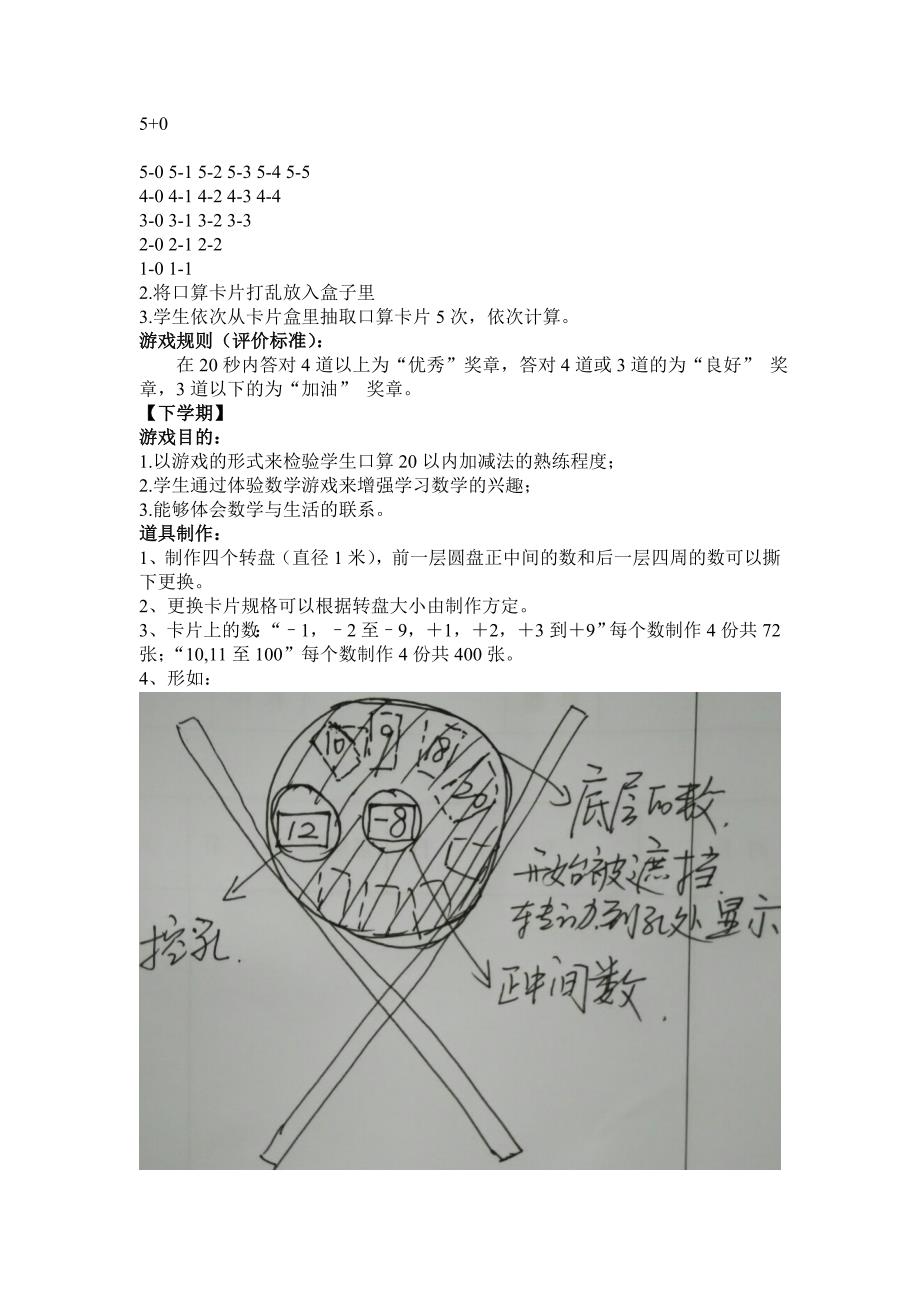 5+0
5-0 5-1 5-2 5-3 5-4 5-5
4-0 4-1 4-2 4-3 4-4
3-0 3-1 3-2 3-3
2-0 2-1 2-2
1-0 1-1
2.将口算卡片打乱放入盒子里
3.学生依次从卡片盒里抽取口算卡片 5 次，依次计算。
游戏规则（评价标准）：
在 20 秒内答对 4 道以上为“优秀”奖章，答对 4 道或 3 道的为“良好” 奖
章，3 道以下的为“加油” 奖章。
【下学期】
游戏目的：
1.以游戏的形式来检验学生口算 20 以内加减法的熟练程度；
2.学生通过体验数学游戏来增强学习数学的兴趣；
3.能够体会数学与生活的联系。
道具制作：
1、制作四个转盘（直径 1 米），前一层圆盘正中间的数和后一层四周的数可以撕
下更换。
2、更换卡片规格可以根据转盘大小由制作方定。
3、卡片上的数：“﹣1，﹣2 至﹣9，＋1，＋2，＋3 到＋9”每个数制作 4 份共 72
张；“10,11 至 100”每个数制作 4 份共 400 张。
4、形如：
10 9 18
20
12 -8
底层的数.
开始被遮挡
转动到孔处显示
挖孔.
正中间数.